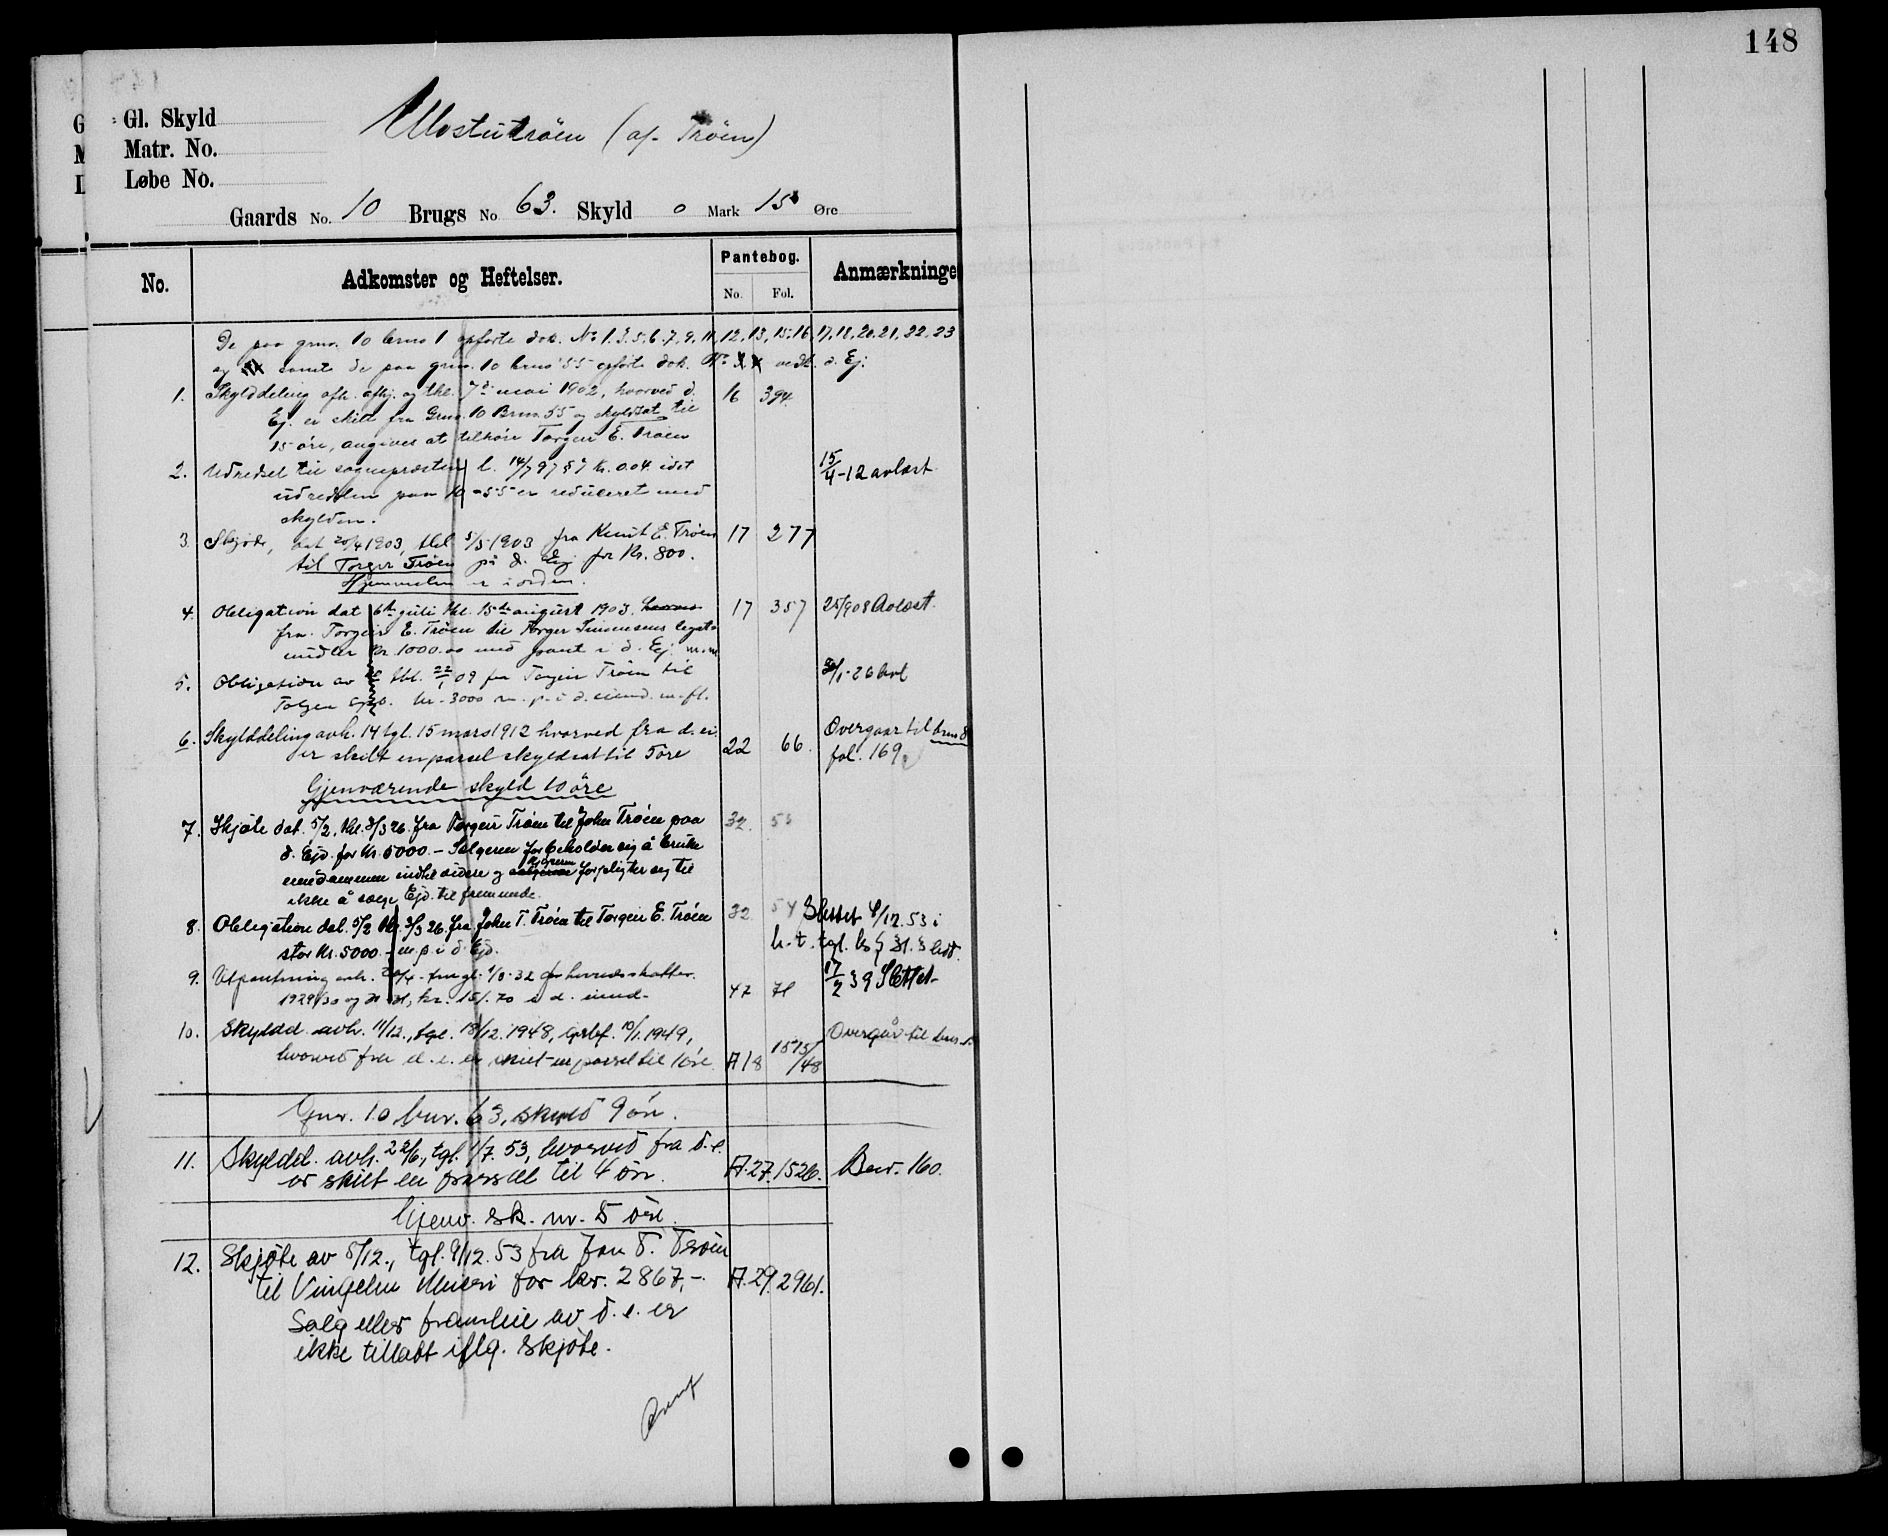 148
Gl. Skyld
Matr. No.
Løbe No.
(af Trøen)
Gaards No. 10 Brugs No 63. Skyld 0 Mark 15 Øre
No. Adkomster og Heftelser. Pantebog. No. Fol. Anmærkninge
De paa grno. 10 brno 1 opførte dok. No 1.3.5.6.7.9.11.12.13.15.16.17.18.20.21.22.23
og samt de paa grno. 10 brno 55 opførte dok. No vedk. d. Ej.
1. Skylddeling afh. afhj. og thl. 7de mai 1902, hvorved d. 16 394.
Ej. er skilt fra Grno. 10 Brno. 55 og skyldsat til
15 øre, angives at tilhøre Torgeir E. Trøen
2. Udredsel til sognepresten l. 14/7 97 § 7 Kr. 0.04. idet 15/4-12 avlæst.
udredslen paa 10-55 er reduceret med
skylden.
3. Skjøde, dat 20/4 1903, thl 5/5 1903 fra Knut E. Trøen 17 277
til Torger Trøen på d. Ej for Kr. 800.
Hjemmelen er i orden.
4. Obligation dat 6te juli thl. 15de august 1903. 17 357 25/9 08 Avlæst.
fra Torgeir E. Trøen til Torger Simensens legats
midler Kr. 1000.00 med pant i d. Ej. m.m.
5. Obligation av thl. 22/1 09 fra Torgeir Trøen til 30/1-26 Avl
Tolgen kr. 3000 m. p. i d. eiend. m. fl.
6. Skylddeling avh. 14 tgl. 15 mars 1912 hvorved fra d. ei. 22 66. Overgaar til brno 8
er skilt en parsel skyldsat til 5 øre fol. 169
Gjenværende skyld 10 øre
7. Skjøte dat. 5/2, thl. 3/3 26. fra Torgeir Trøen til John Trøen paa 32. 53
d. Ejd. for Kr. 5000.- Selgeren forbeholder sig å bruke
eiendommen indtil videre og kjøperen forpligter sig til
ikke å sælge Ejd. til fremmede.
8. Obligation dat. 5/2 thl. 3/3 26. fra John T. Trøen til Torgeir E. Trøen 32 54 Slettet 9/12.53 i
stor Kr. 5000.- m. p. i d. Ejd. h. t. tgl. lov § 31. 3 ledd.
9. Utpantning avh. 20/4- tingl. 1/8-32 for herredsskatter 47 71 17/2 39 Slettet
1929/30 og 30-31, kr. 151.70 i d. eiend.
10. Skyldd. avh. 11/12., tgl. 18/12. 1948, 10/1. 1949, Overgår til bnr.
hvorved fra d. e. er skilt en parsel til 1 øre A 18 1515/48
Gnr. 10 bnr. 63, skyld 9 øre.
11. Skyldd. avh. 22/6, tgl. 1/7. 53, hvorved fra d. e. A. 27. 1526. Bnr. 160.
er skilt en parsell til 4 øre.
Gjenv. sk. nr. 5 øre.
12. Skjøte av 5/12., tgl. 9/12. 53 fra Jon T. Trøen
til Vingelen Meieri for kr. 2867,-. A. 29. 2961.
Salg eller framleie av d. e. er
ikke tillatt iflg. skjøte.